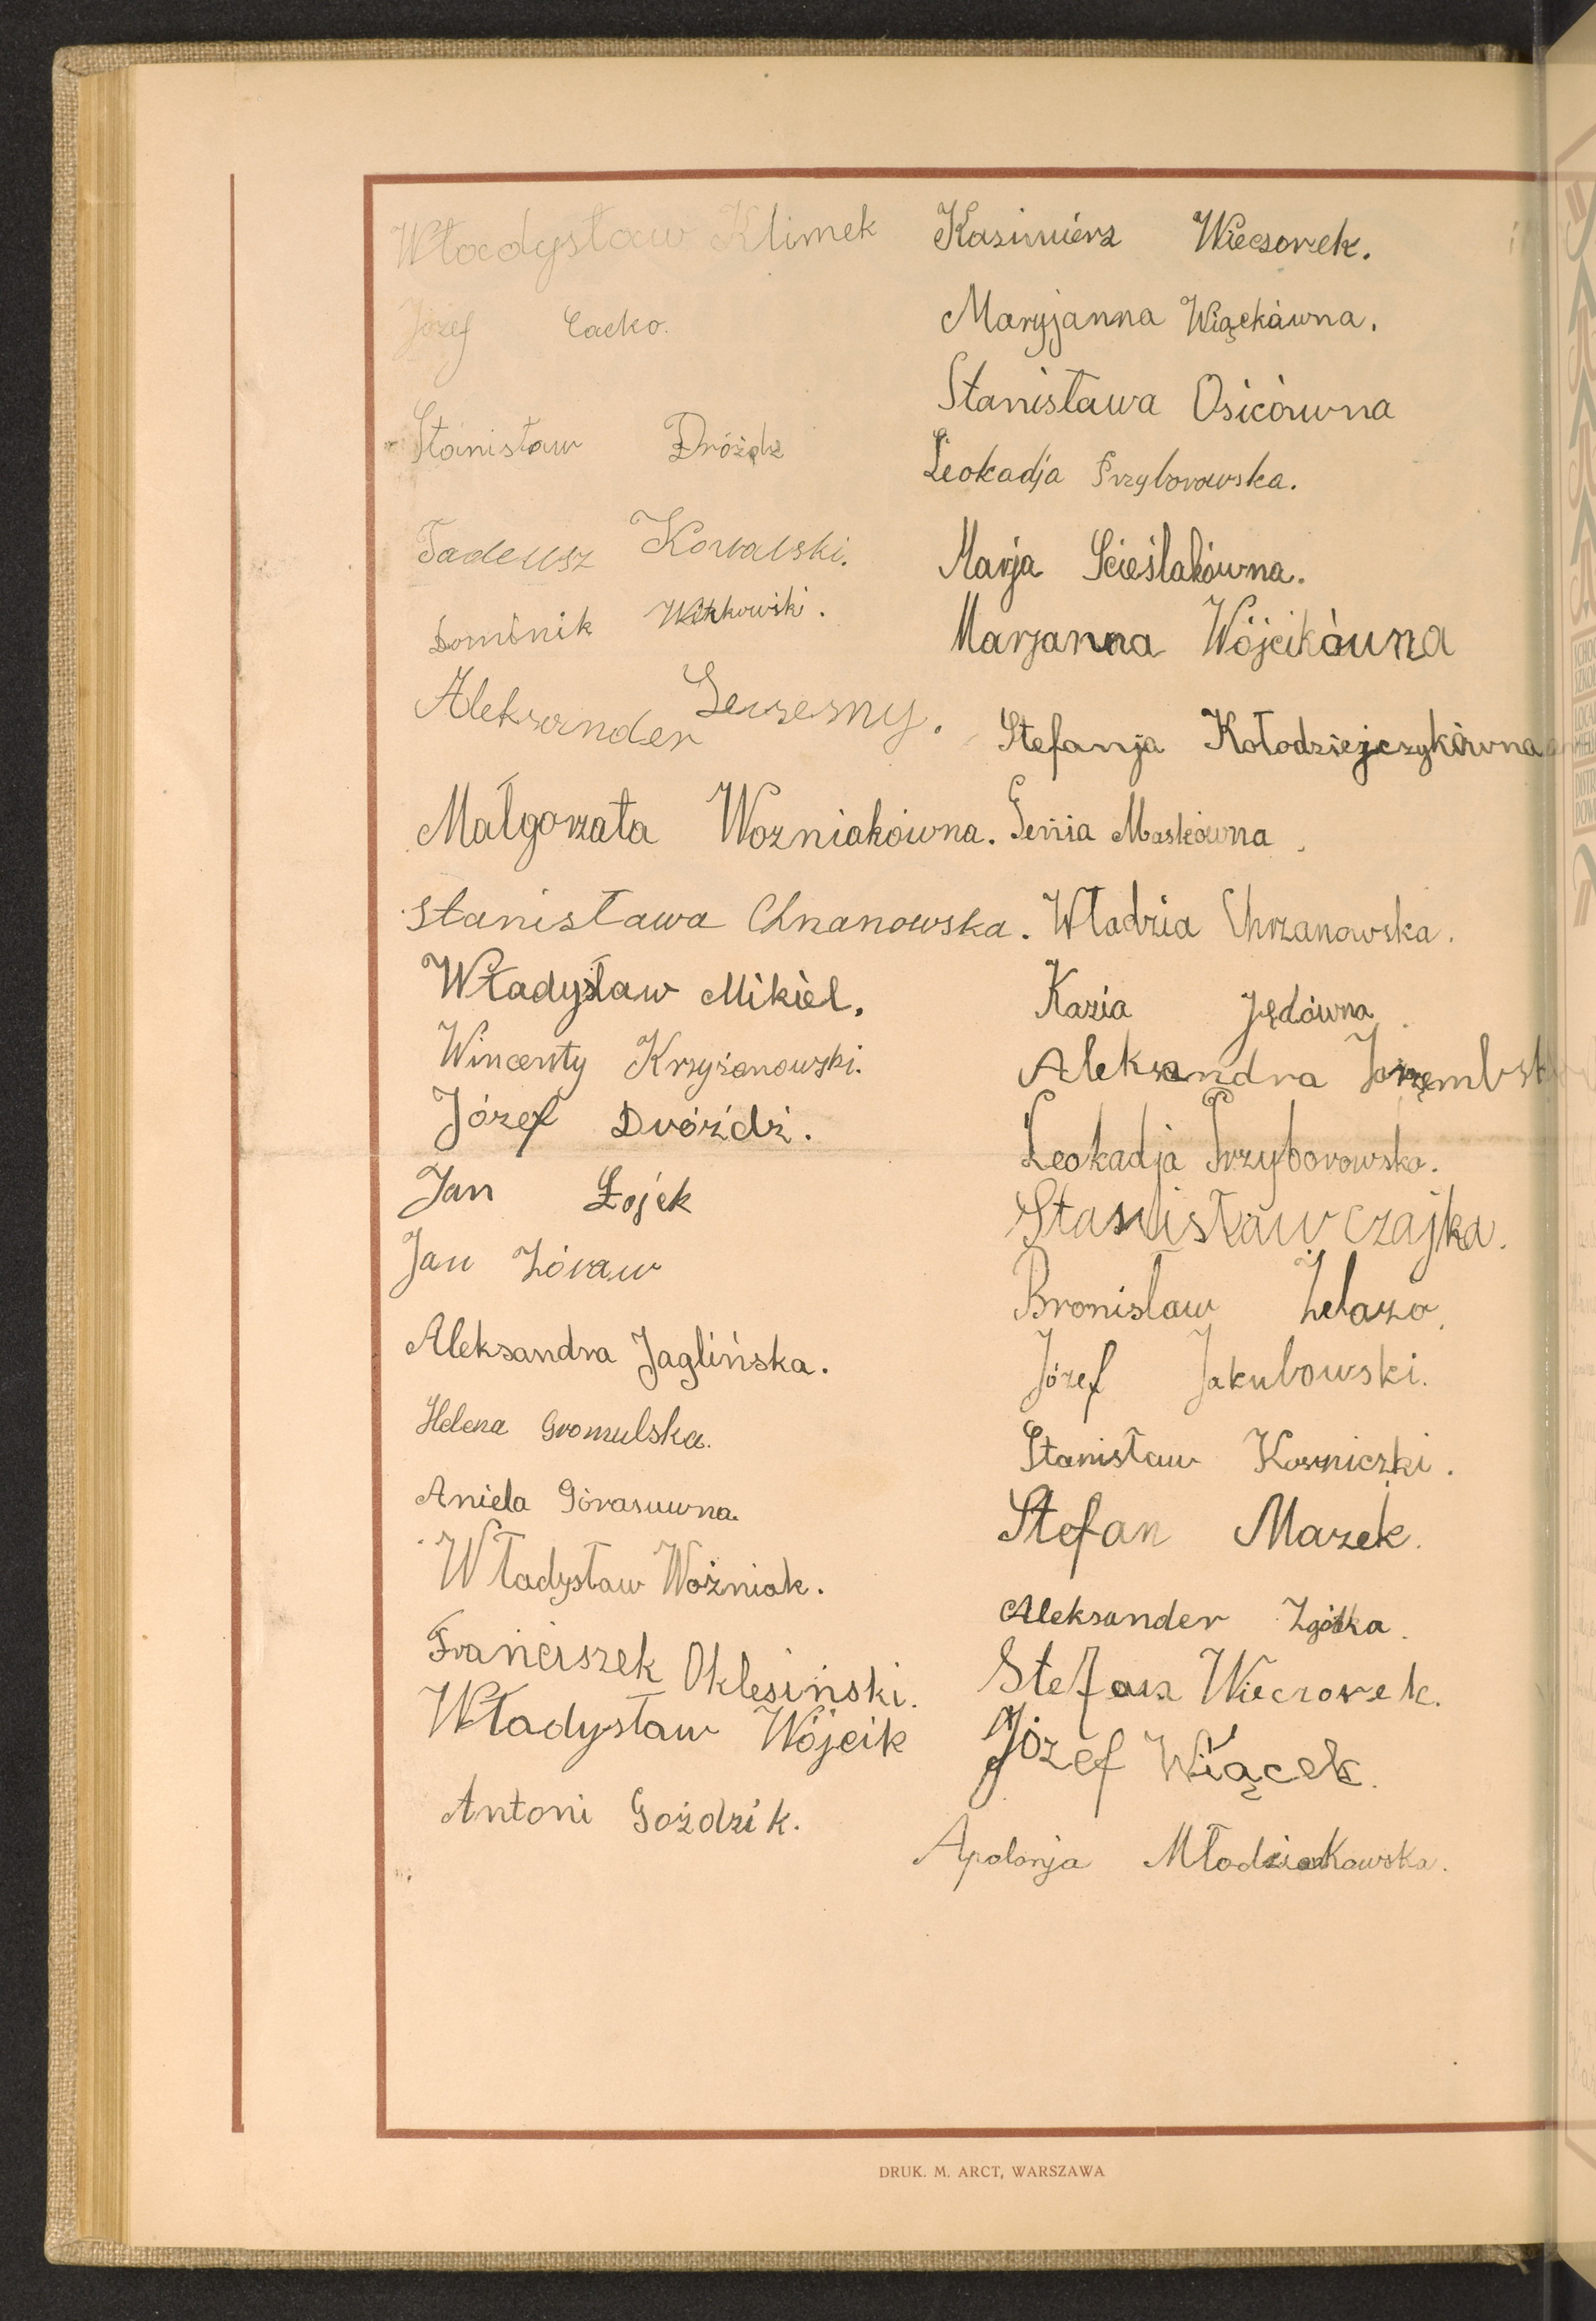 Władysław Klimek
Józef Cacko.
Stanisław Dróżdż
Tadeusz Kowalski.
Dominik Witkowski.
Aleksander
Małgorzata Wozniakówna.
Stanisława Chranowska.
Władysław Mikiel.
Wincenty Krzyżanowski.
Józef Dróżdż.
Jan Łojek
Jan Żóraw
Aleksandra Jaglińska.
Helena Gromulska.
Aniela Górasuwna.
Władysław Woźniak.
Franciszek Oklesiński.
Władysław Wójcik
Antoni Goździk.
Kazimierz Wieczorek.
Maryjanna Wiąckówna.
Stanisława Osicówna
Leokadja Przyborowska.
Marja Scieślakówna.
Marjanna Wójcikówna
Stefanja Kołodziejczykówna
Genia Maskówna
Władzia Chrzanowska.
Kazia Jędówna
Aleksandra
Leokadja Przyborowska.
Stanisław Czajka.
Bronisław Żelazo.
Józef Jakubowski.
Stanisław
Stefan Marek.
Aleksander Zgółka.
Stefan Wieczorek.
Józef Wiącek.
Apolonja Młodziakowska.
DRUK. M. ARCT, WARSZAWA